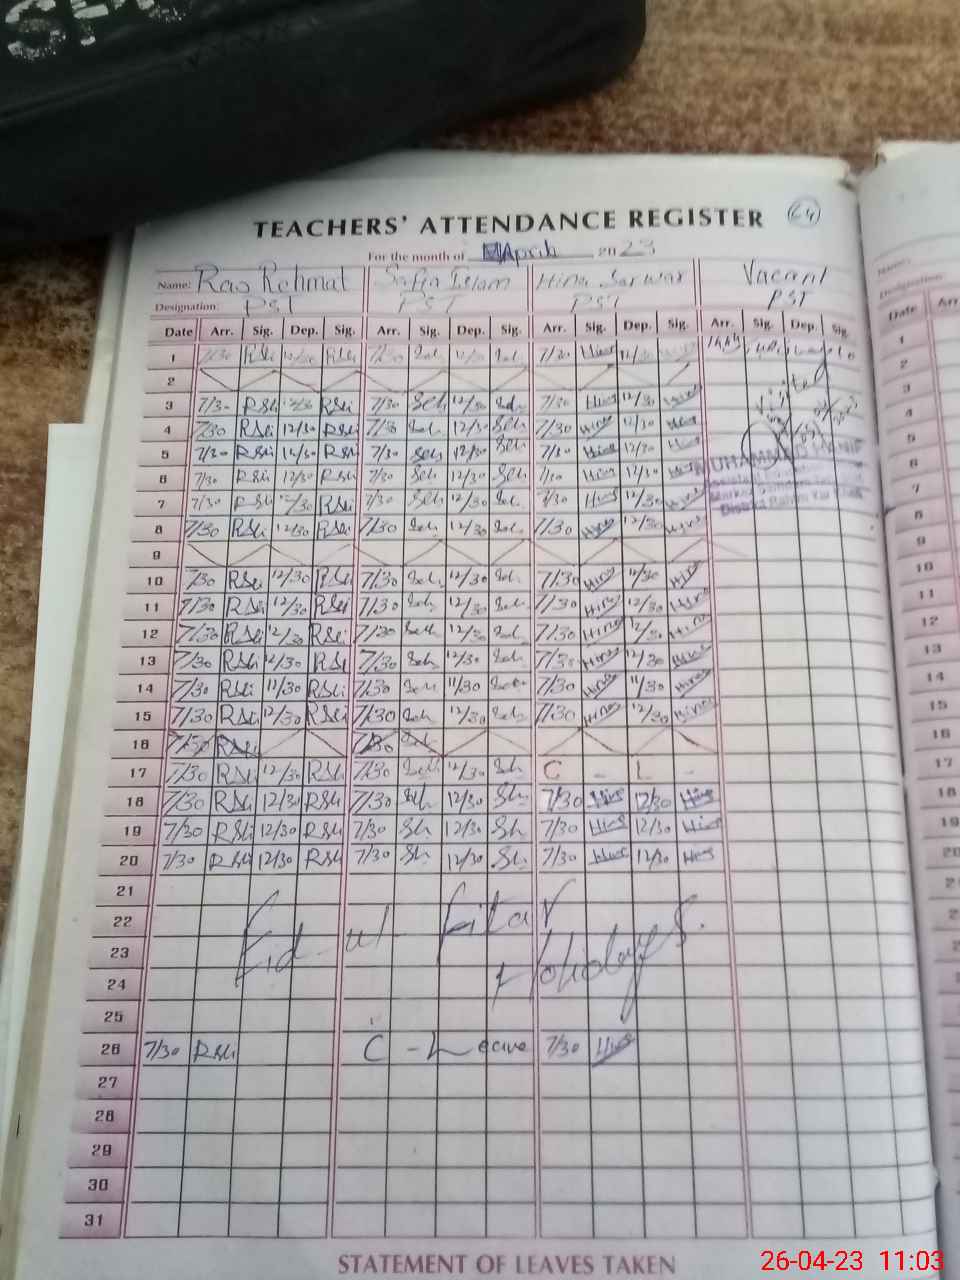 TEACHERS' ATTENDANCE REGISTER 64
For the month of April 2023
Name: Rao Rehmat Safia Islam Hina Sarwar Vacant
Designation: PST PST PST PST
Date Arr. Sig. Dep. Sig. Arr. Sig. Dep. Sig. Arr. Sig. Dep. Sig. Arr. Sig. Dep. Sig. Date
1 7/30 RSli 12/30 RSli 7/30 Seh 12/30 Seh 7/30 Hina 12/30 Hina 1
2 2
3 7/30 RSli 12/30 RSli 7/30 Seh 12/30 Seh 7/30 Hina 12/30 Hina Visited 3
4 7/30 RSli 12/30 RSli 7/30 Seh 12/30 Seh 7/30 Hina 12/30 Hina 4
5 7/30 RSli 12/30 RSli 7/30 Seh 12/30 Seh 7/30 Hina 12/30 Hina 5
MUHAMMAD HANIF
6 7/30 RSli 12/30 RSli 7/30 Seh 12/30 Seh 7/30 Hina 12/30 Hina 6
7 7/30 RSli 12/30 RSli 7/30 Seh 12/30 Seh 7/30 Hina 12/30 Hina 7
District Rahim Yar Khan
8 7/30 RSli 12/30 RSli 7/30 Seh 12/30 Seh 7/30 Hina 12/30 Hina 8
9 9
10 7/30 RSli 12/30 RSli 7/30 Seh 12/30 Seh 7/30 Hina 12/30 Hina 10
11 7/30 RSli 12/30 RSli 7/30 Seh 12/30 Seh 7/30 Hina 12/30 Hina 11
12 7/30 RSli 12/30 RSli 7/30 Seh 12/30 Seh 7/30 Hina 12/30 Hina 12
13 7/30 RSli 12/30 RSli 7/30 Seh 12/30 Seh 7/30 Hina 12/30 Hina 13
14 7/30 RSli 11/30 RSli 7/30 Seh 11/30 Seh 7/30 Hina 11/30 Hina 14
15 7/30 RSli 12/30 RSli 7/30 Seh 12/30 Seh 7/30 Hina 12/30 Hina 15
16 7/30 RSli 7/30 Seh 16
17 7/30 RSli 12/30 RSli 7/30 Seh 12/30 Seh C - L - 17
18 7/30 RSli 12/30 RSli 7/30 Seh 12/30 Sh 7/30 Hina 12/30 Hina 18
19 7/30 RSli 12/30 RSli 7/30 Sh 12/30 Sh 7/30 Hina 12/30 Hina 19
20 7/30 RSli 12/30 RSli 7/30 Sh 12/30 Sh 7/30 Hina 12/30 Hina 20
21
22
Eid-ul-Fitar
23
Holidays.
24
25
26 7/30 RSli C - Leave 7/30 Hina
27
28
29
30
31
STATEMENT OF LEAVES TAKEN
26-04-23 11:03